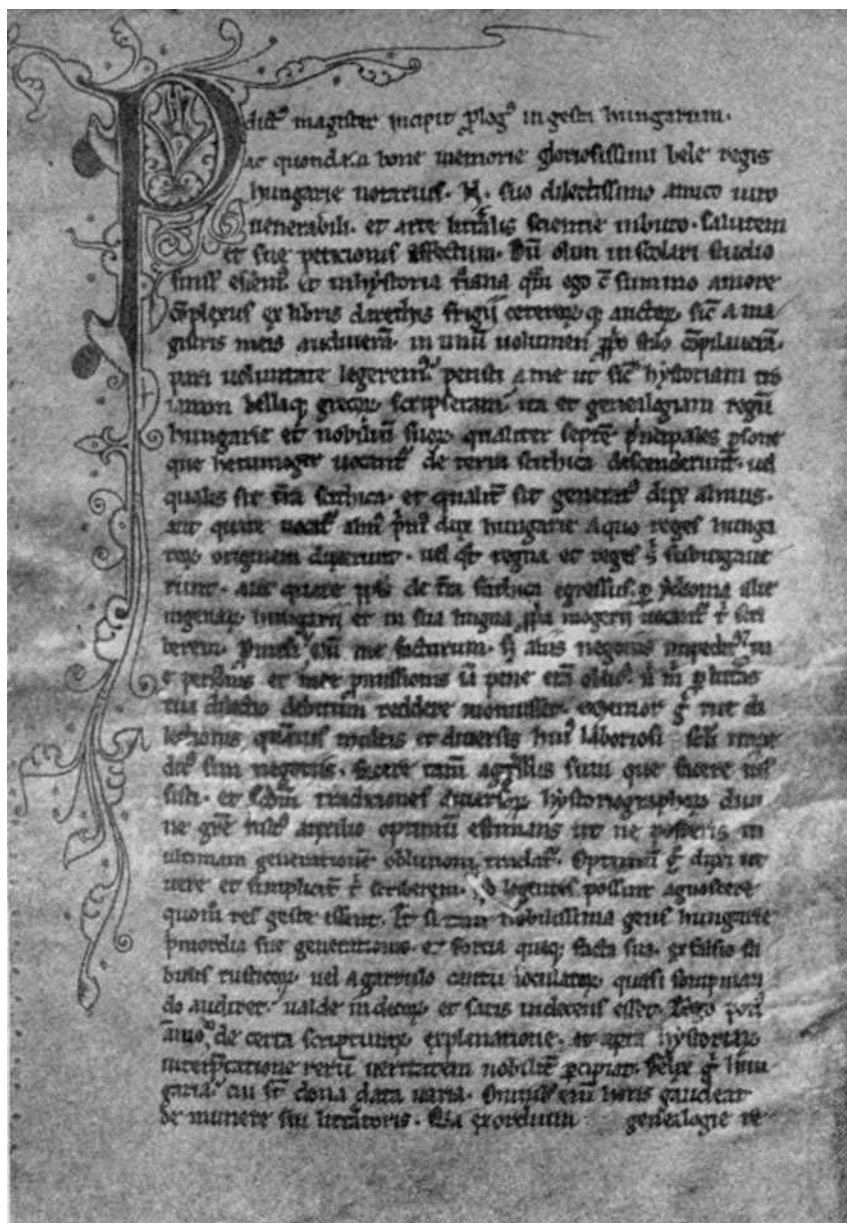 dict᷒ magister incipit ꝓlog᷒ in gesta hungarum.
ac quondam bone memorie gloriosissimi bele regis
hungarie notarius. N. suo dilectissimo amico uiro
uenerabili. et arte litt̃alis scientie inbuto. Salutem
et sue peticionis effectum. Dũ olim in scolari studio
simul essem᷒. et in hystoria t̃iana q̃m ego cũ summo amore
cõplexus ex libris darethis frigij ceterorꝝ qꝫ auctorꝝ. sic̃ a ma
gistris meis audiuerã. in unũ uolumen ꝓp̃o stilo cõpilauerã.
pari uoluntate legerem᷒. petisti a me ut sic̃ hystoriam tro
ianam bellaqꝫ grecorꝝ scripseram. ita et genealogiam regũ
hungarie et nobiliũ suorꝝ. qualiter septẽ p̃ncipales ꝑsone
que hetumoger uocant᷑ de terra scithica descenderunt. uel
qualis sit t̃ra scithica. et qualit̃ sit generat᷒ dux almus.
aut quare uocat᷑ alm᷒ p̃m᷒ dux hungarie a quo reges hunga
rorꝝ originem duxerunt. uel qt̃ regna et reges s̃ subiugaue
runt. aut quare ppl̃s de t̃ra scithica egressus ꝑ ydioma alie
nigenarꝝ hungarij et in sua lingua ꝓp̃a mogerij uocant᷑ t̃ scri
berem. Promisi et̃ me facturum. sꝫ aliis negotiis impedit᷒ tu
e peticionis et mee ꝓmissionis iã pene erã oblit᷒. n̄ m̃ ꝑ litt̃as
tua dilectio debitum reddere monuisset. Memor g̊ tue di
lectionis quãuis multis et diuersis hui᷒ laboriosi sc̃li impe
dit᷒ sim negotiis. facere tam̃ ag̃ssus sum que facere ius
sisti. et scd̃m traditiones diuersorꝝ hystoriographorꝝ diui
ne gr̃e fult᷒ auxilio optimũ estimans ut ne posteris in
ultimam generationẽ obliuioni tradat᷑. Optimũ g̊ duxi ut
uere et simplicit̃ t̃ scriberem. qd̃ legentes possint agnoscere
quom̃ res geste essent. Et si tam nobilissima gens hungarie
p̃mordia sue generationis et fortia queqꝫ facta sua. ex falsis fa
bulis rusticorꝝ. uel a garrulo cantu ioculatorꝝ quasi sompnian
do audiret. ualde indecorꝝ et satis indecens esset. Ergo poti᷒
ãmo᷒ de certa scripturarꝝ explanatione. et aperta hystoriarꝝ
interp̃tatione rerũ ueritatem nobilit̃ ꝑcipiat. Felix g̊ hun
garia. cui st̃ dona data uaria. Omnibꝫ eñ horis gaudeat
de munere sui litt̃atoris. Quia exordium genealogie re